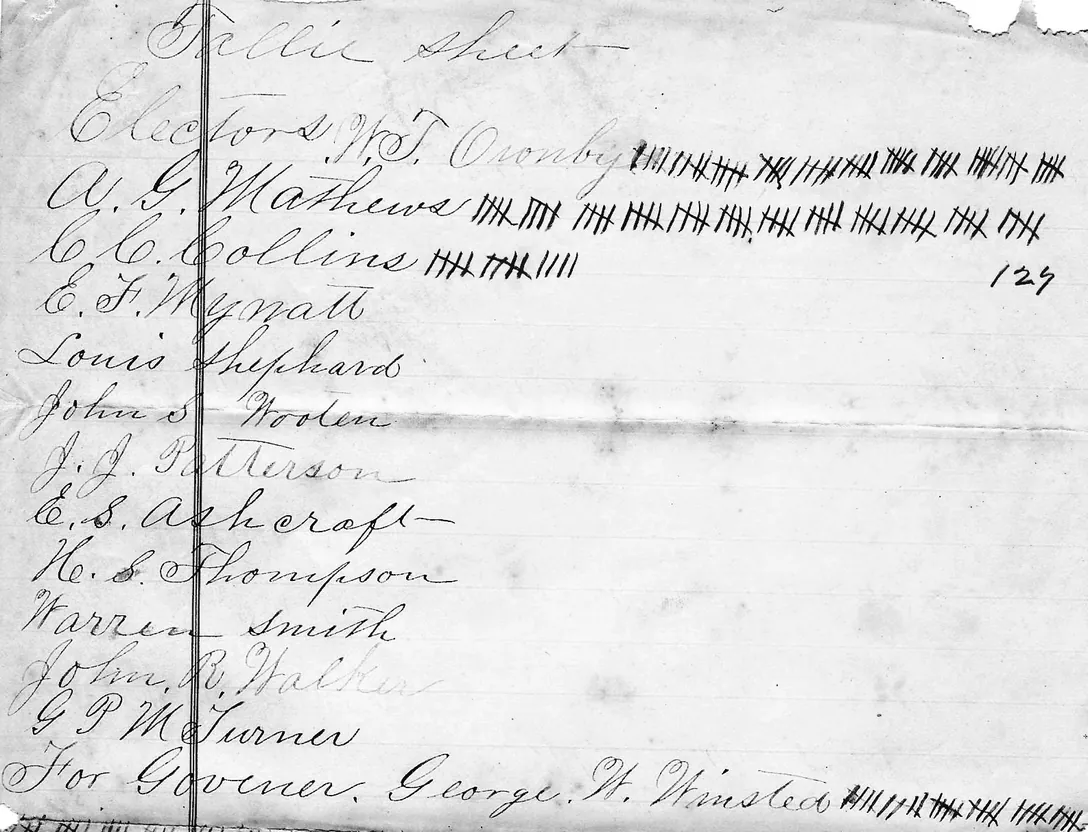 Tallie sheet
Electors W. T.
A. G. Mathews
C. C. Collins
127
E. F. Mynatt
Louis Shephard
John S Wooten
J. J. Patterson
E. S. Ashcraft
H. S. Thompson
Warren Smith
John. R. Walker
G P M Turner
For Govener. George. W. Winsted